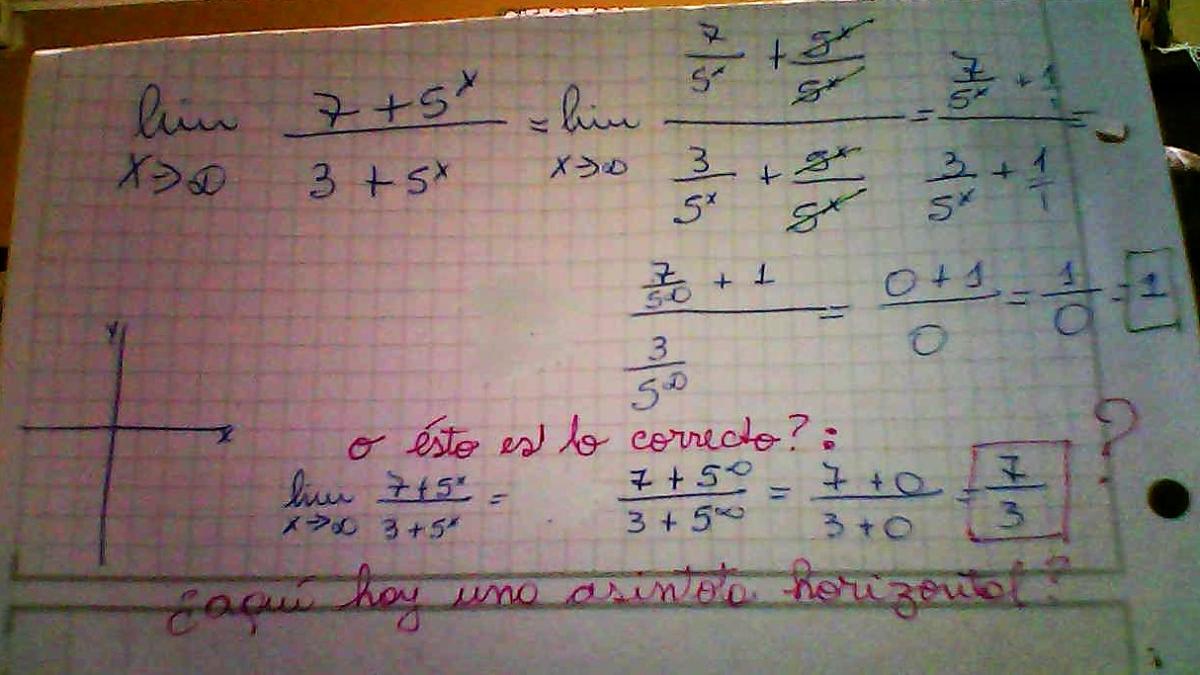 lim 7 + 5^x / 3 + 5^x = lim 7/5^x + 5^x/5^x / 3/5^x + 5^x/5^x = 7/5^x + 1 / 3/5^x + 1/1 =
x→∞ x→∞
7/5^∞ + 1 / 3/5^∞ = 0 + 1 / 0 = 1/0 = 1
y
x
o ésto es lo correcto?:
lim 7+5^x / 3+5^x = 7 + 5^∞ / 3 + 5^∞ = 7 + 0 / 3 + 0 = 7/3 ?
x→∞
¿aquí hay una asintota horizontal?